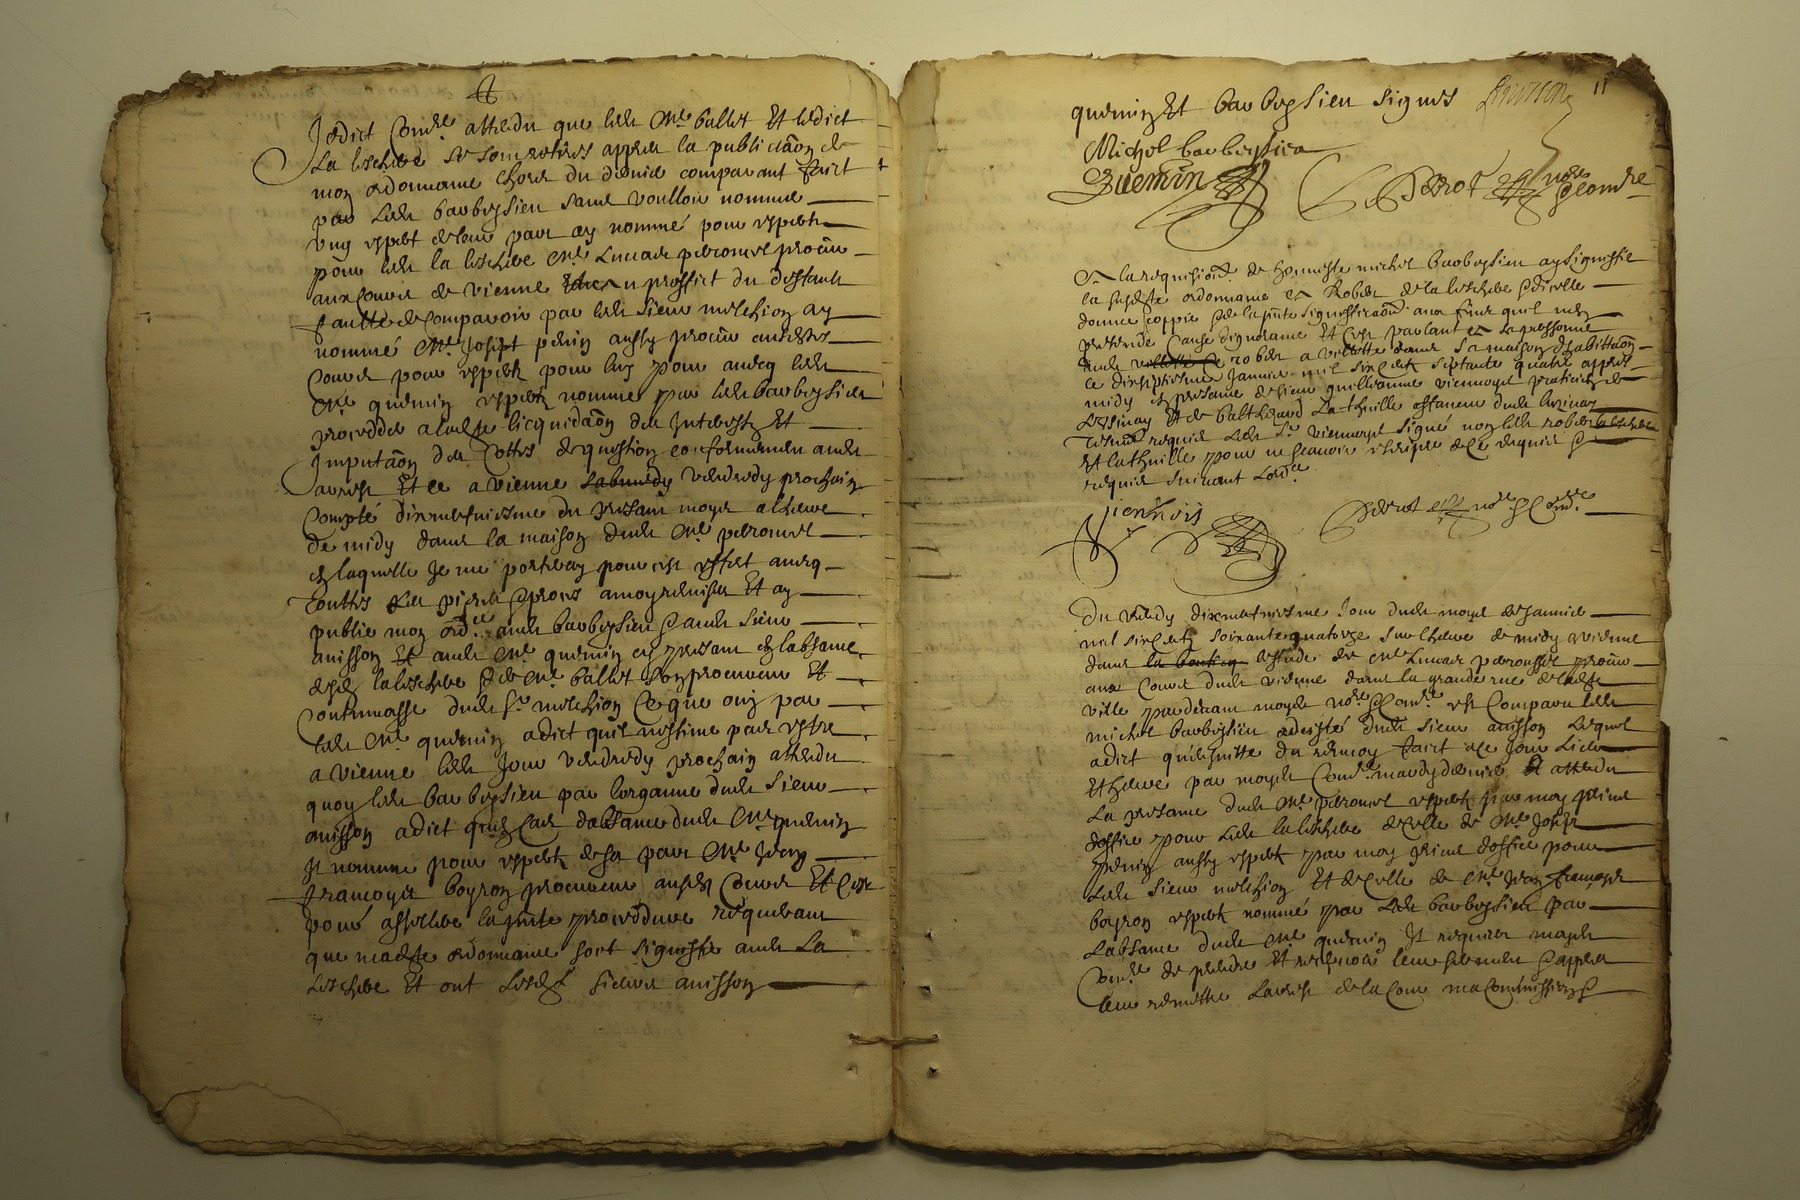 Jedict Comre attendu que ledt Me ballet Et ledict
La leschere se sont retirés appres la publicãon de
mon ordonnance hors du dernier comparant faict
par ledt barbessieu sans voulloir nommer
ung expert de leur part ay nommé pour expertz
pour ledt la leschere Me Lucas perouset procur
aux Cours de vienne Et au proffict du deffault
faulte de comparoir par ledt sieur melchion ay
nommé Me Joseph perin aussy procur ausdites
Cours pour expertz pour luy pour avecq ledt
Me quemin expertz nommé par ledt barbessieu
proceddes a ladte licquidãon des Interestz Et
Imputãon des Cottes de question conformement audt
arrest Et ce a vienne vendredy prochain
Compté dixneufviesme du present moys a lheure
de midy dans la maison dudt Me perouset
en laquelle Je me porteray pour cest effect avecq
touttes les pieces a moy remises Et ay
publié mon ordce audt barbessieu & audt sieur
anisson Et audt Me quemin en present en labsance
desdt la leschere & de Me ballet son procureur Et
Contumasse dudt sr melchion Ce que ouy par
ledt Me quemin a dict quil nestime pas estre
a vienne ledt Jour vendredy prochain attendu
quoy ledt barbessieu par lorganne dudt sieur
anisson a dict quen cas dabsance dudt Me quemin
Il nomme pour expertz de sa part Me Jean
francoys boyron procureur ausdt Cours Et Ce
pour assister la pnte proceddure requerant
que madte ordonnance soit signiffié audt La
Leschere Et ont Lesdts sieurs anisson
11
quemin Et barbessieu signés
Michel barbessieu
Quemin
Perrot nore & Comre
A la requision de honneste michel barbessieu ay signiffié
la susdte ordonnance a Rober de la leschere & dicelle
donné coppie & de la pnte signifficaon aux fins quil nen
pretende Cause dignorance Et Cest parlant a sa personne
dudt rober a villette dans sa maison dhabittaon
ce dixseptiesme Janvier mil six Centz septante quatre appres
midy en presance de sieur guilliaume viennoys praticien de
Lezinay Et de balthezard Lathuille dudt luzinay
tesmoins requis ledt sr viennoys signé non ledt rober la leschere
Et lathuille pour ne scavoir escripre de ce enquis &
requis suivant Lordce
viennois
Perrot nore & Comre
Du vendy dixneufviesme Jour dudt moys de Janvier
mil six Centz soixante quatorze sur lheure de midy vienne
dans la boutique lestude de Me Lucas perousset procur
aux Cours dudt vienne dans la grande rue de ladte
ville pardevant moydt nore & Comre est Comparu ledt
michel barbessieu adcisté dudt sieur anisson Lequel
a dict quensuitte du renvoy faict a ce Jour Lieu
Et heure par moydt Comre mardy dernier Et attendu
La presance dudt Me perouset expertz par moy prins
doffice pour ledt la leschere de celle de Me Joseph
perin aussy expertz par moy prins doffice pour
Ledt sieur melchion Et de Celle de Me Jean francoys
boyron expertz nommé par Ledt barbessieu par
Labsance dudt Me quemin Il requiert moydt
Comre de prendre Et recepvoir leur serment & appres
leur remettre Larrest de la Cour ma Commission &